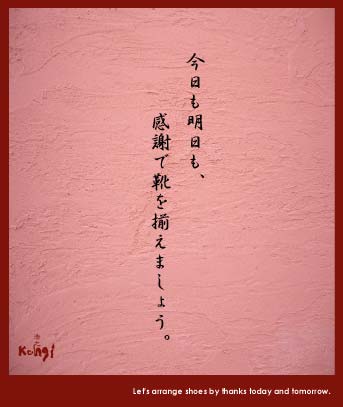 今日も明日も、
感謝で靴を揃えましょう。
Kongi
Let's arrange shoes by thanks today and tomorrow.